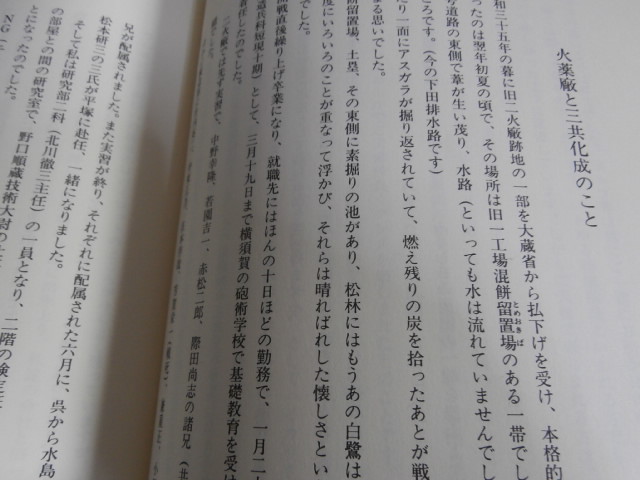 火薬廠と三共化成のこと
和三十五年の暮に旧二火廠跡地の一部を大蔵省から払下げを受け、本格的
ったのは翌年初夏の頃で、その場所は旧一工場混餅留置場のある一帯でし
とめおきば
道路の東側で葦が生い茂り、水路（といっても水は流れていませんでし
ころです。（今の下田排水路です）
たり一面にアスガラが掘り返されていて、燃え残りの炭を拾ったあとが戦
る思いでした。
餅留置場、土塁、その東側に素掘りの池があり、松林にはもうあの白鷺は
度にいろいろのことが重なって浮かび、それらは晴ればれした懐しさとい
でした。
戦直後繰り上げ卒業になり、就職先にはほんの十日ほどの勤務で、一月二
造兵科短現十期）として、三月十九日まで横須賀の砲術学校で基礎教育を受け
任したのでした。
中野幸隆、若園吉一、赤松二郎、際田尚志の諸兄（北
兄が配属されました。また実習が終り、それぞれに配属された六月に、呉から水島
松本研三の三氏が平塚に赴任、一緒になりました。
そして私は研究部二科（北川徹三主任）の一員となり、二階の検定
の部屋との間の研究室で、野口順蔵技術大尉の
とになったのでした。
NG